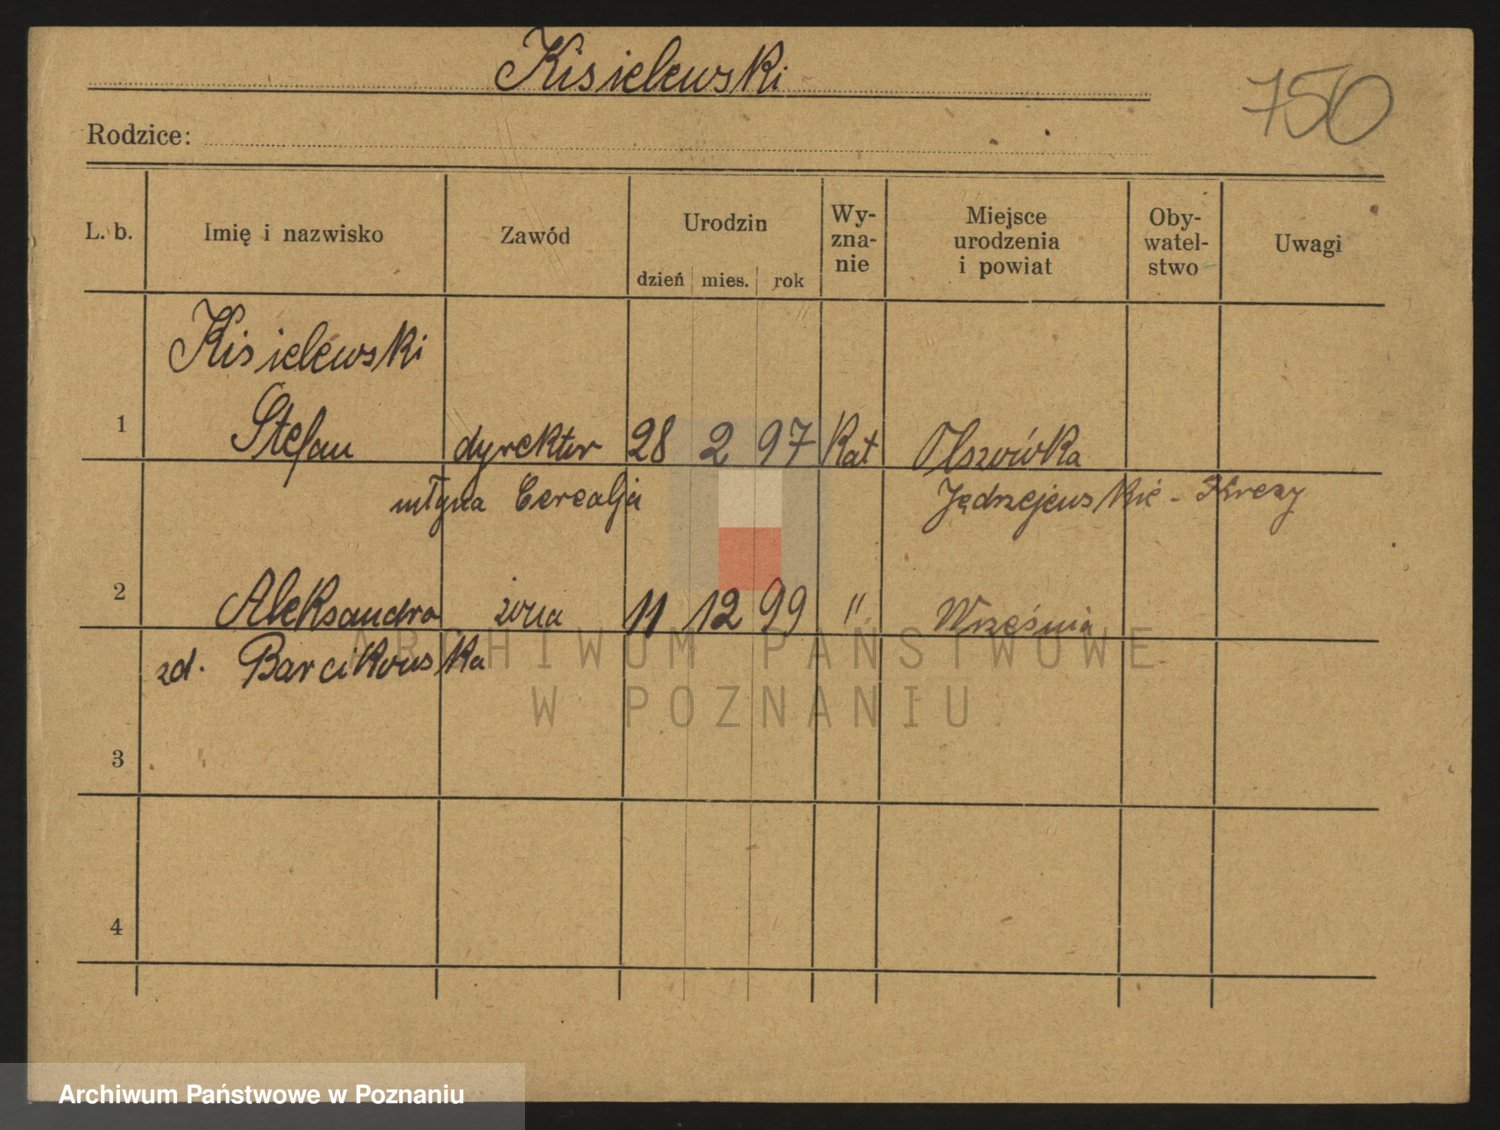 Kisielewski
750
Rodzice:
L. b. Imię i nazwisko Zawód Urodzin dzień mies. rok Wy-zna-nie Miejsce urodzenia i powiat Oby-watel-stwo Uwagi
Kisielewski
1 Stefan dyrektor 28 2 97 Kat Olszówka
młyna Cerealja Jędrzejewskie - Kresy
2 Aleksandra żona 11 12 99 " Września
zd. Barcikowska
3
4
ARCHIWUM PAŃSTWOWE
W POZNANIU
Archiwum Państwowe w Poznaniu